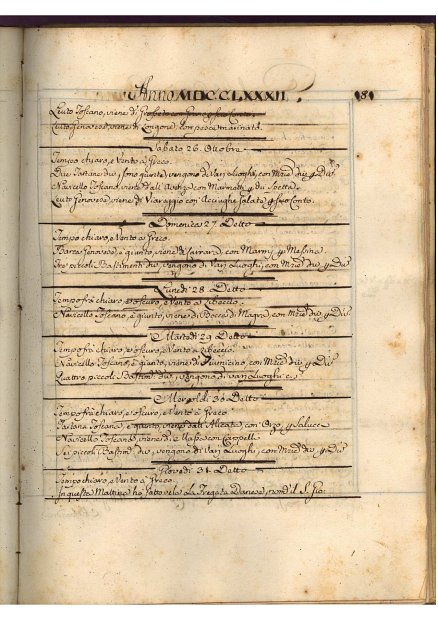 Anno MDCCLXXXII 181
Leuto Toscano, viene di
Leuto Genovese, viene di Longone con pesce marinato
Sabato 26. Ottobre
Tempo chiaro, e Vento a Greco.
Due Tartane div., sono giunte, vengono di Varj Luoghi, con Mrie div. p. Div.
Navicello Toscano, viene con Marmotti p. Spetta.
Leuto Genovese, viene di Varaggio con Acciughe Salate p. suo Conto.
Domenica 27 Detto
Tempo chiaro, e Vento a Greco.
Barca Genovese, è giunto, viene di Carrara, con Marmi p. Messina
Tre piccoli Bastimenti div., vengono di Varj Luoghi, con Mrie div. p. Div.
Lunedì 28 Detto
Tempo frà chiaro, e oscuro, e Vento a Libeccio.
Navicello Toscano, è giunto, viene di Bocca di Magra, con Mrie div. p. Div.
Martedì 29 Detto
Tempo frà chiaro, e oscuro, e Vento a Libeccio.
Navicello Toscano, è giunto, viene di Fiumicino, con Mrie div. p. Div.
Quattro piccoli Bastim. div., vengono di varj Luoghi
Mercoldì 30 Detto
Tempo frà chiaro, e oscuro, e Vento a Greco.
Tartana Toscana, è giunta, viene dall' Alicata, con Orzo, p. Saluce
Navicello Toscano, viene di con Cappelli
Sei piccoli Bastim. div., vengono di Varj Luoghi, con Mrie div. p. Div.
Giovedì 31 Detto
Tempo chiaro, e Vento a Greco.
In questa Mattina ha fatto vela la Fregata Danese, nom. il S. Gio.